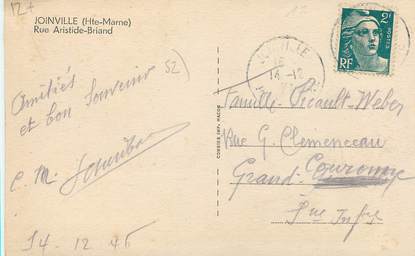 12+
JOINVILLE (Hte-Marne)
Rue Aristide-Briand
JOINVILLE
14-12
2F
POSTES
RF
Amitiés
et bon Souvenir
C. M.
14. 12 45
COMBIER IMP. MACON
Famille Picault-Weber
Rue G. Clemenceau
Grand-Couronne
Sne Infre